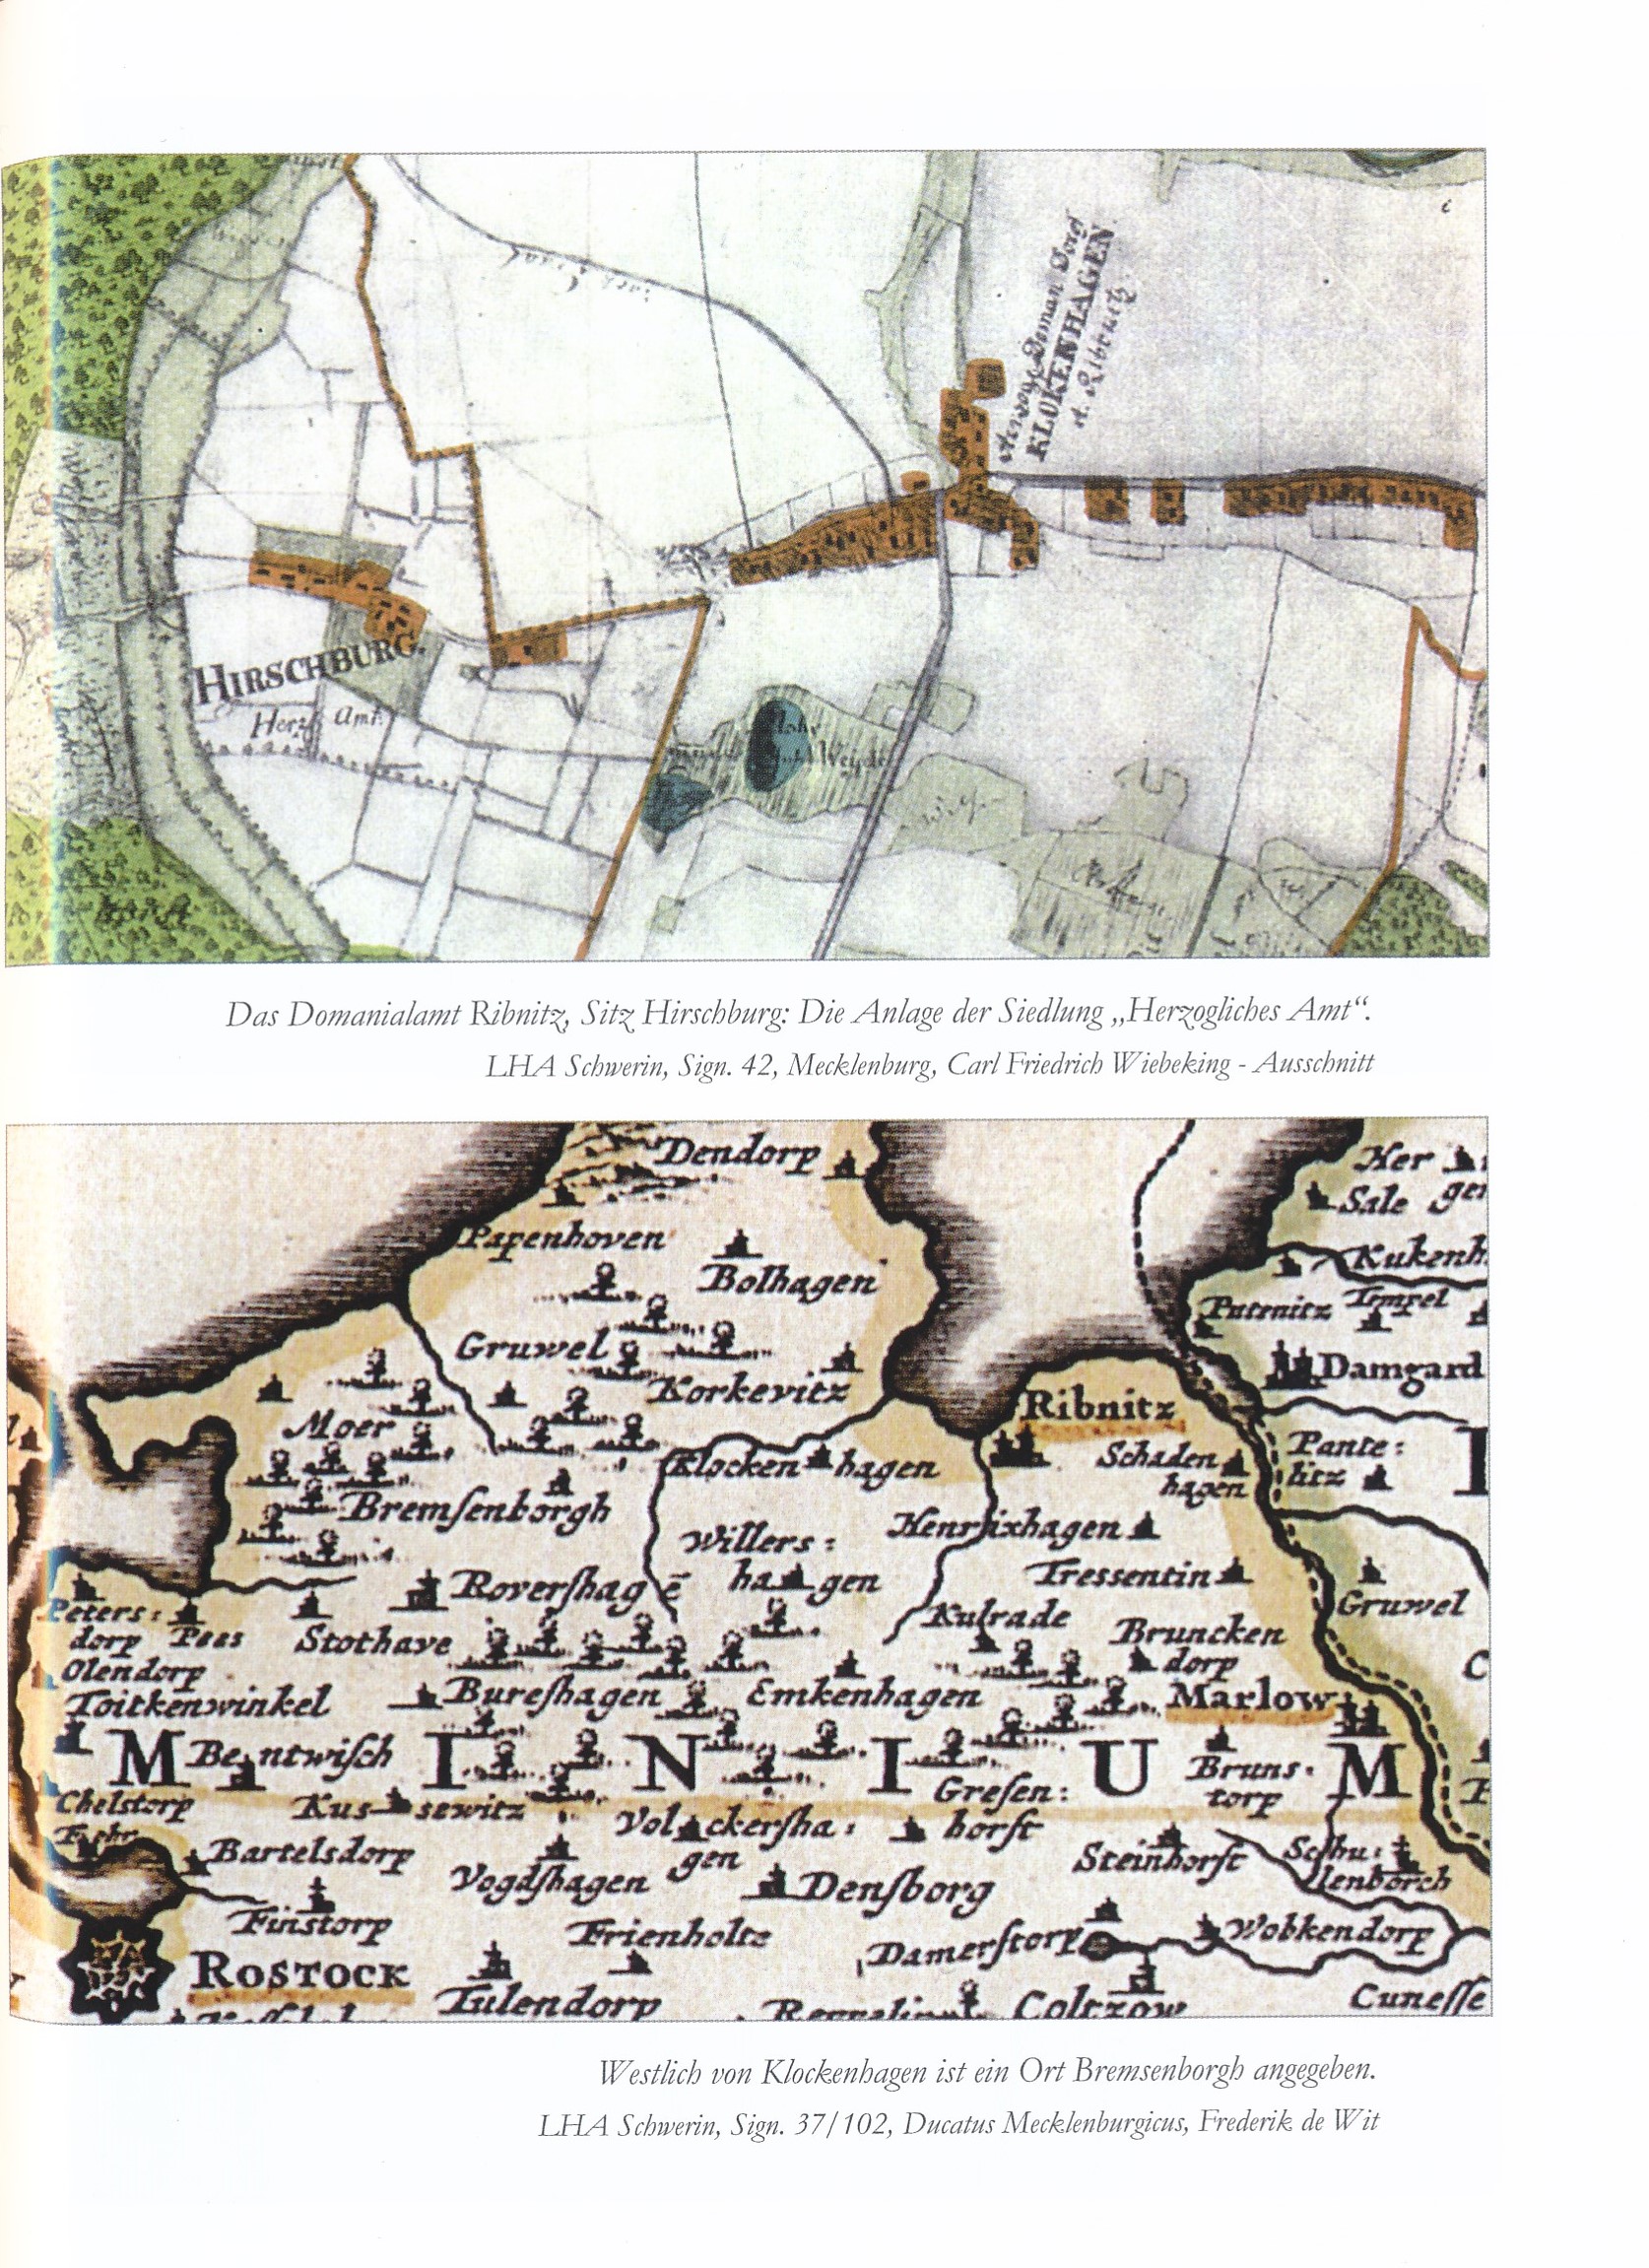 i
Doman Dorf
KLOKENHAGEN
A. Ribenitz
HIRSCHBURG.
Herzgl Amt.
Weyde
Das Domanialamt Ribnitz, Sitz Hirschburg: Die Anlage der Siedlung „Herzogliches Amt“.
LHA Schwerin, Sign. 42, Mecklenburg, Carl Friedrich Wiebeking - Ausschnitt
Dendorp
Her
gen
Sale
Papenhoven
Bolhagen
Kukenh
Putenitz
Tempel
Gruwel
Damgard
Korkevitz
Ribnitz
Moer
Klocken hagen
Schaden
hagen
Pante:
litz
Bremsenborgh
Henrixhagen
Willers:
hagen
Tressentin
Rovershagē
Gruwel
Peters:
dorp
Poes
Stothave
Kulrade
Bruncken
dorp
Olendorp
Toitkenwinkel
Bureshagen
Emkenhagen
Marlow
M I N I U M
Bentwisch
Bruns.
torp
Gresen:
horst
Chelstorp
Kussewitz
Volckersha:
gen
Fehr
Bartelsdorp
Vogdshagen
Steinhorst
Schu:
lenborch
Densborg
Finstorp
Frienholtz
Damerstorp
Wobkendorp
ROSTOCK
Tulendorp
Coltzow
Cunesse
Westlich von Klockenhagen ist ein Ort Bremsenborgh angegeben.
LHA Schwerin, Sign. 37/102, Ducatus Mecklenburgicus, Frederik de Wit